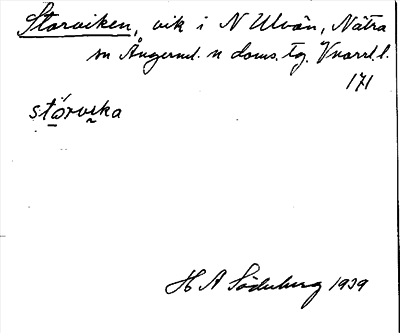 Storviken, vik i N Ulvön, Nätra
sn Ångerml. n doms. tg. Vnorrl. l.
171
stórvika
H A Söderberg 1939